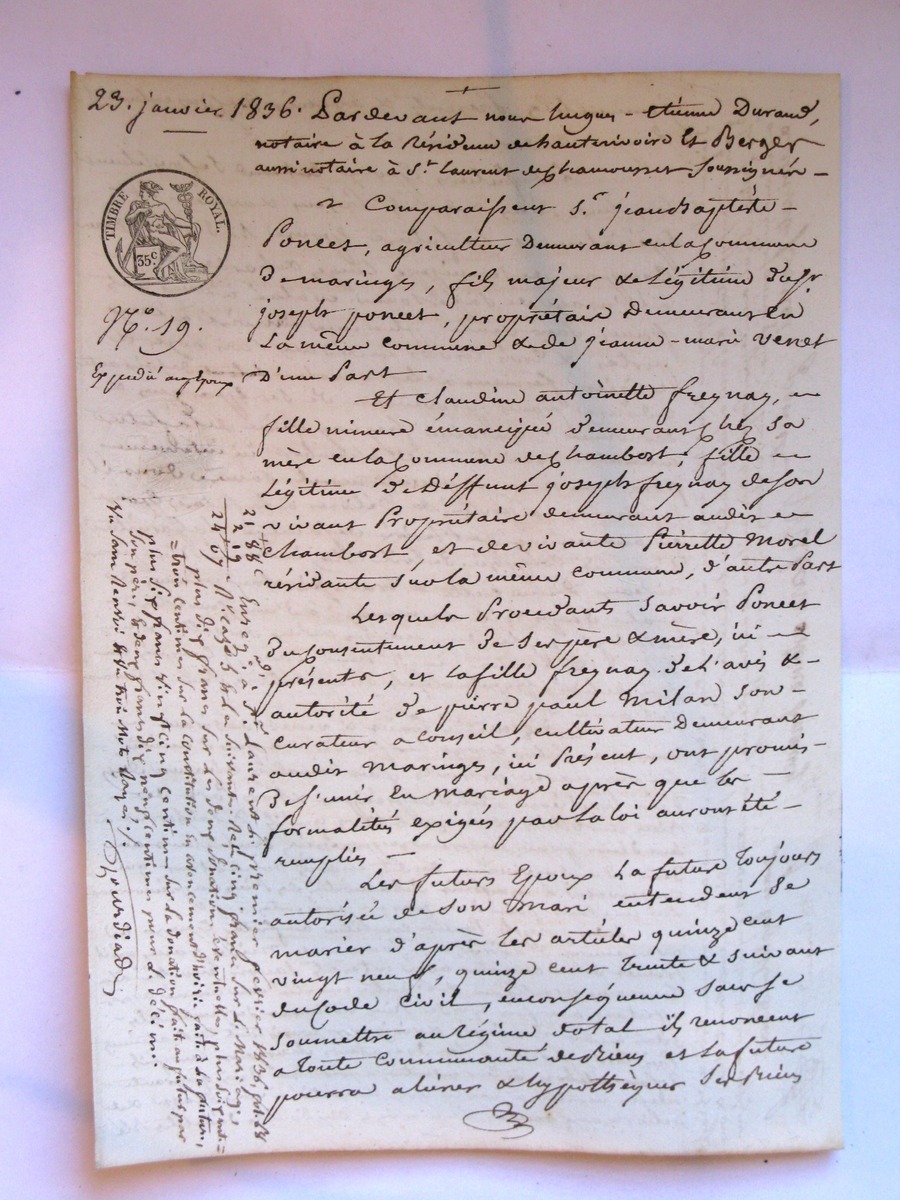 23. janvier 1836. Pardevant nous hugues - étienne Durand,
notaire à la résidence de hauterivoire Et Berger
aussi notaire à St. laurent de chamousset soussignés -
TIMBRE ROYAL.
35c.
Comparaissent Sr. jean Baptiste -
Poncet, agriculteur Demeurant en la Commune
De maringes, fils majeur & Légitime de Sr.
joseph poncet, propriétaire Demeurant En
La même commune & de jeanne - marie Venet
D'une Part
No. 19.
Expédié aux époux
Et claudine antoinette freynay,
fille mineure émancipée demeurant chez sa
mère en la Commune de Chambost, fille
Légitime de Déffunt joseph freynay de son
vivant Propriétaire demeurant audit
Chambost, et de vivante Pierrette Morel
résidante sur la même commune, d'autre Part
Lesquels Procédants Savoir Poncet
Du consentement De Ses père & mère, ici
présents, et la fille freynay De L'avis &
autorité De pierre paul Milan son
curateur a conseil, cultivateur Demeurant
audit maringes, ici Présent, ont promis
De s'unir En mariage après que les
formalités exigées par La loi auront été
remplies
Les futurs Epoux La future toujours
autorisée de Son Mari entendent Se
marier d'après les articles quinze cent
vingt neuf, quinze cent trente & suivant
du Code Civil, en conséquence Sans Se
Soumettre au Régime dotal ils renoncent
a toute Communauté de Biens et La future
pourra aliéner & hypothéquer Ses Biens
21 88c
2 19
24 07
Enreg. à St. Laurent le premier février 1836
plus dix francs sur Les Donation
trois centimes sur La Constitution en avancement d'hoirie faite à La future,
plus six francs vingt cinq centimes sur La donation faite au futur par
Son père, & deux francs dix neuf centimes pour Le décime